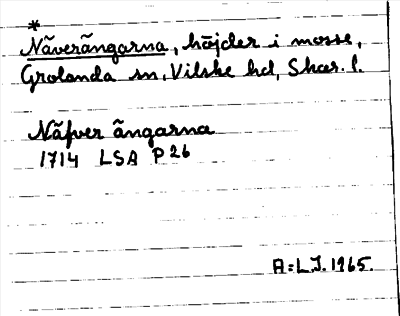 *
Näverängarna, höjder i mosse,
Grolanda sn, Vilske hd, Skar. l.
Näfver ängarna
1714 LSA P26
A:L.J. 1965.